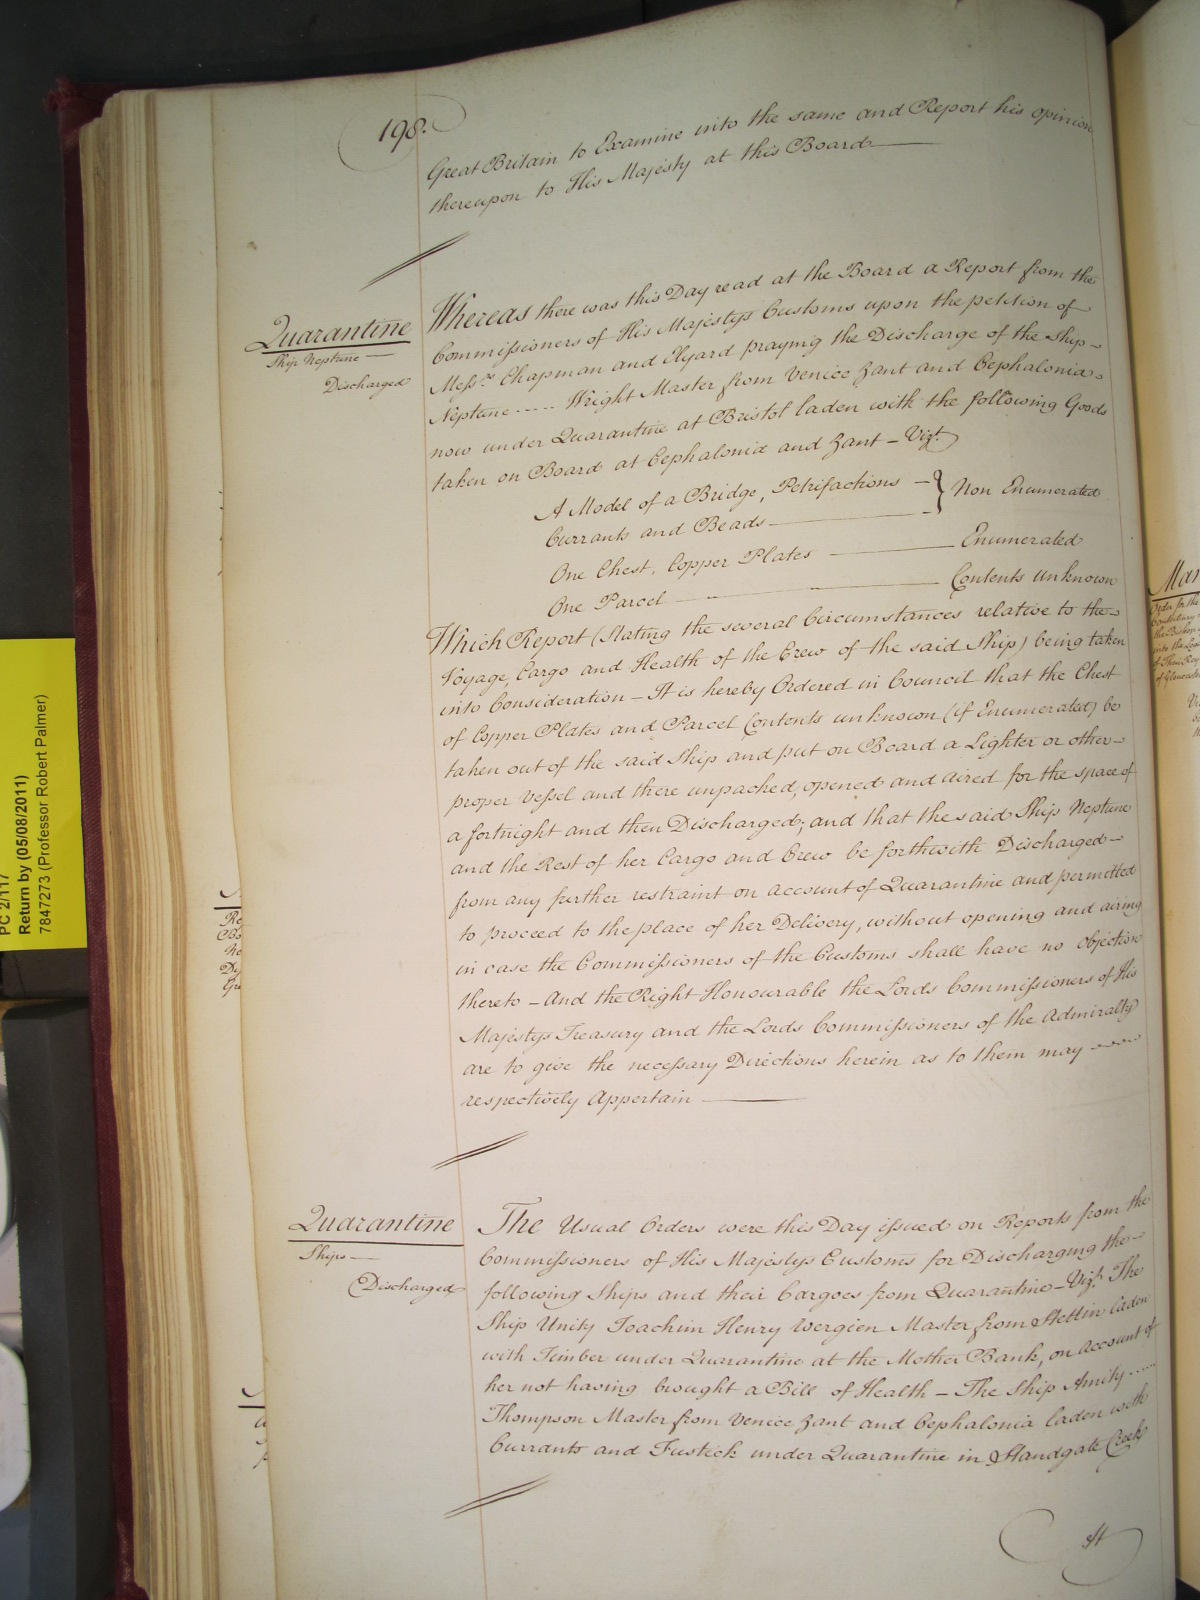 198.
Great Britain to Examine into the same and Report his opinion
thereupon to His Majesty at this Board
Quarantine
Ship Neptune
Discharged
Whereas there was this Day read at the Board a Report from the
Commissioners of His Majestys Customs upon the petition of
Messrs. Chapman and Elyard praying the Discharge of the Ship
Neptune ..... Wright Master from Venice Zant and Cephalonia
now under Quarantine at Bristol laden with the following Goods
taken on Board at Cephalonia and Zant – Vizt.
A Model of a Bridge, Petrifactions – } Non Enumerated
Currants and Beads
One Chest, Copper Plates Enumerated
One Parcel Contents unknown
Which Report (Stating the several Circumstances relative to the
Voyage, Cargo and Health of the Crew of the said Ship) being taken
into Consideration – It is hereby Ordered in Council that the Chest
of Copper Plates and Parcel Contents unknown (if Enumerated) be
taken out of the said Ship and put on Board a Lighter or other
proper Vessel and there unpacked, opened and aired for the space of
a fortnight and then Discharged; and that the said Ship Neptune
and the Rest of her Cargo and Crew be forthwith Discharged
from any further restraint on account of Quarantine and permitted
to proceed to the place of her Delivery, without opening and airing
in case the Commissioners of the Customs shall have no objection
thereto – And the Right Honourable the Lords Commissioners of His
Majestys Treasury and the Lords Commissioners of the Admiralty
are to give the necessary Directions herein as to them may
respectively Appertain
Quarantine
Ships
Discharged
The Usual Orders were this Day issued on Reports from the
Commissioners of His Majestys Customs for Discharging the
following Ships and their Cargoes from Quarantine – Vizt. The
Ship Unity Joachim Henry Wergien Master from Stettin laden
with Timber under Quarantine at the Mother Bank, on account of
her not having brought a Bill of Health – The Ship Amity .....
Thompson Master from Venice Zant and Cephalonia laden with
Currants and Fustick under Quarantine in Standgate Creek
At
PC 2/117
Return by (05/08/2011)
7847273 (Professor Robert Palmer)